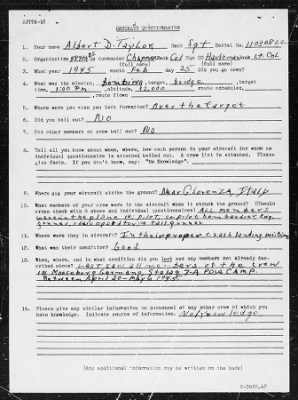 AFPPA-12
CASUALTY QUESTIONNAIRE
1. Your name Albert D. Taylor Rank Sgt Serial No. 11080822
2. Organization Gp Commander Chapman Rank Col Sqn CO Rank Lt. Col
(full name) (full name)
3. What year 1945 month Feb day 25 did you go down?
4. What was the mission, Bombing, target, bridge, target
time, 1:00 PM, altitude, route scheduled,
, route flown
5. Where were you when you left formation? Over the target
6. Did you bail out? No
7. Did other members of crew bail out? No
8. Tell all you know about when, where, how each person in your aircraft for whom no
individual questionnaire is attached bailed out. A crew list is attached. Please
give facts. If you don't know, say: "No Knowledge".
9. Where did your aircraft strike the ground? Near Florenza, Italy
10. What members of your crew were in the aircraft when it struck the ground? (Should
cross check with 8 above and individual questionnaires) All members
were in the plane
11. Where were they in aircraft? In their proper crash landing position
12. What was their condition? Good
13. When, where, and in what condition did you last see any members not already des-
cribed above? Last saw all members of the crew
in Mooseburg Germany, Stalag 7-A POW CAMP.
Between April 20-May 6 1945.
14. Please give any similar information on personnel of any other crew of which you
have knowledge. Indicate source of information. No Knowledge
(Any additional information may be written on the back)